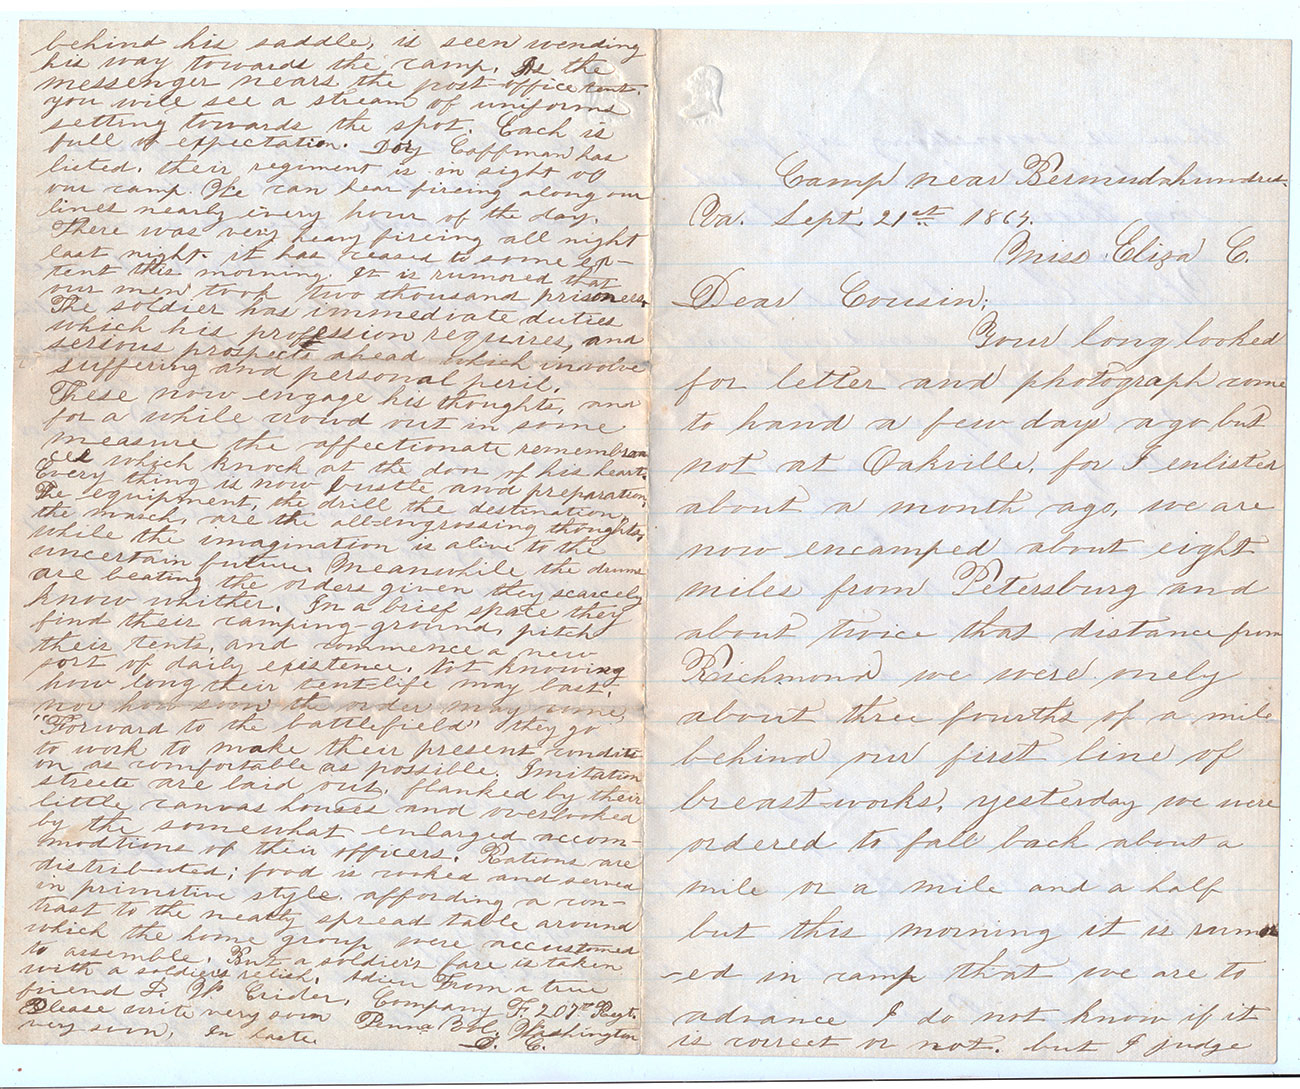 Camp near Bermudahundred
Va. Sept. 21st 1864.
Miss. Eliza C.
Dear Cousin;
Your long looked
for letter and photograph come
to hand a few days ago but
not at Oakville, for I enlisted
about a month ago, we are
now encamped about eight
miles from Petersburg and
about twice that distance from
Richmond we were only
about three fourths of a mile
behind our first line of
breast-works, yesterday we were
ordered to fall back about a
mile or a mile and a half
but this morning it is rumor
-ed in camp that we are to
advance I do not know if it
is correct or not. but I judge
behind his saddle, is seen wending
his way towards the camp. As the
messenger nears the post-office tent.
you will see a stream of uniforms
setting towards the spot. Each is
full of expectation. Dory Coffman has
listed. their regiment is in sight of
our camp We can hear fireing along our
lines nearly every hour of the day.
There was very heavy fireing all night
last night. it has ceased to some ex-
tent this morning. It is rumored that
our men took two thousand prisoners.
The soldier has immediate duties
which his profession requires, and
serious prospects ahead which involve
suffering and personal peril.
These now engage his thoughts, and
for a while crowd out in some
measure the affectionate remembran
ces which knock at the door of his heart.
Every thing is now bustle and preparation,
The equipment, the drill the destination,
the march, are the all-engrossing thoughts,
while the imagination is alive to the
uncertain future. Meanwhile the drums
are beating the orders given they scarcely
know whither. In a brief space they
find their camping-ground, pitch
their tents, and commence a new
sort of daily existence. Not knowing
how long their tent-life may last,
nor how soon the order may come,
"Forward to the battlefield" they go
to work to make their present conditi
on as comfortable as possible. Imitation
streets are laid out, flanked by their
little canvas houses and overlooked
by the somewhat enlarged accom-
modtions of their officers. Rations are
distributed; food is cooked and served
in primitive style. affording a con-
trast to the neatly spread table around
which the home group were accustomed
to assemble. But a soldier's fare is taken
with a soldier's relish. Adieu From a true
friend D. W. Crider. Company F. 207th Regt.
Please write very soon Penna Vol. Washington
very soon, In haste. D. C.